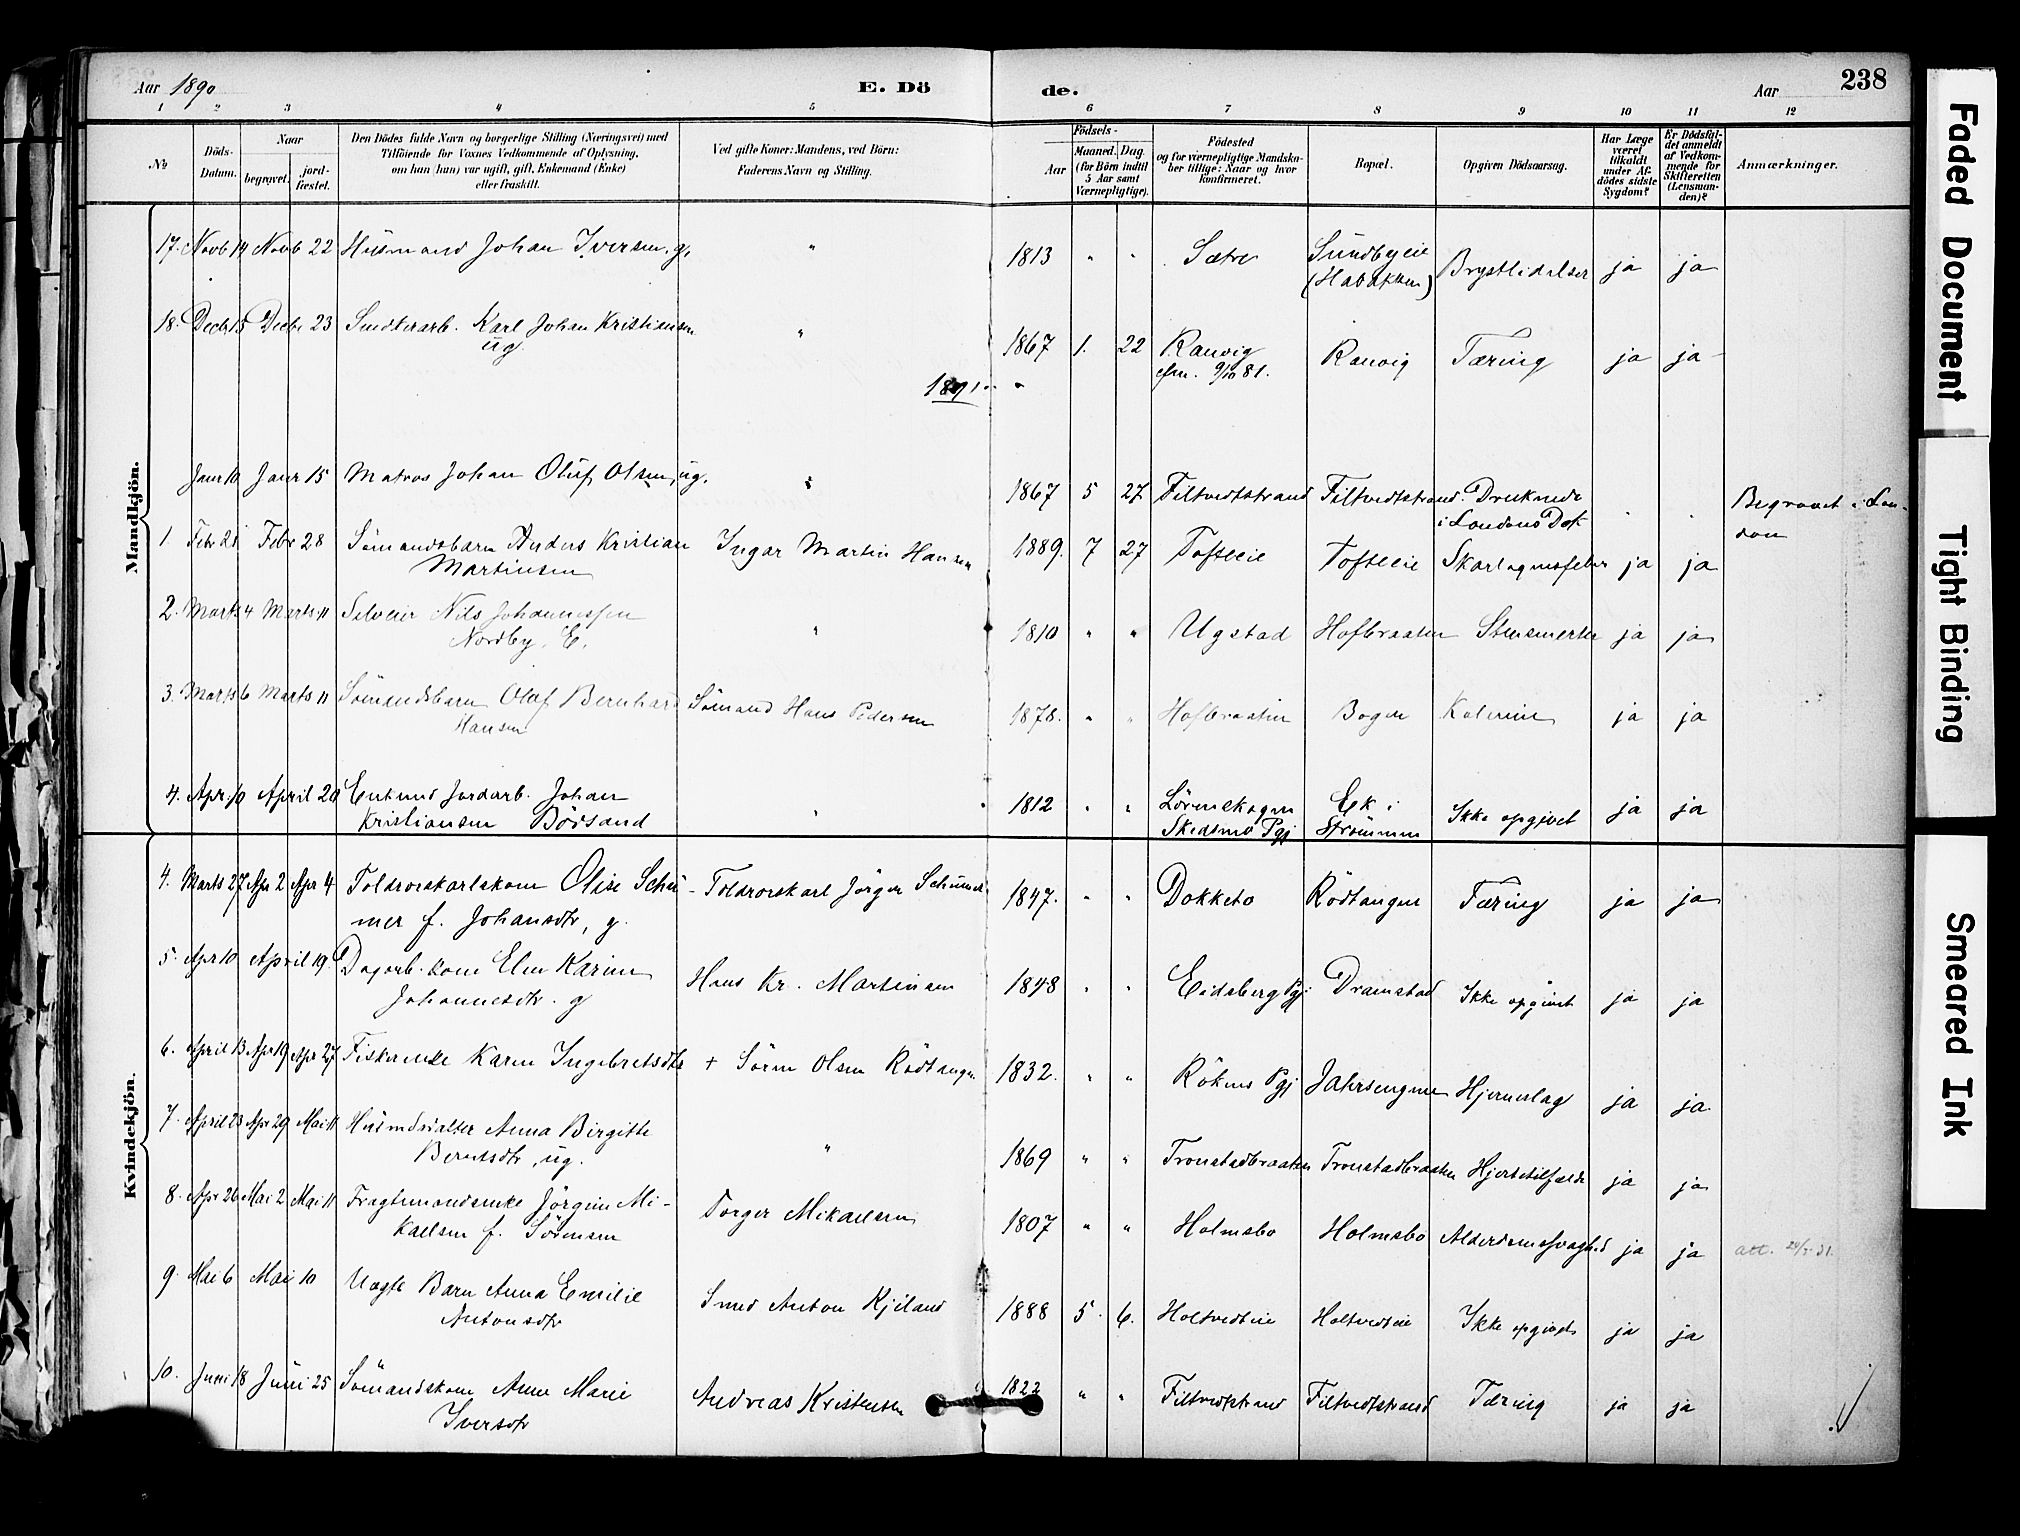 Aar 1890 E. Dö de. Aar 238
1 2 3 4 5 6 7 8 9 10 11 12
№ Döds-Datum. Naar begravet. jordfæstet. Den Dödes fulde Navn og borgerlige Stilling (Næringsvei) med Tilföiende for Voxnes Vedkommende af Oplysning, om han (hun) var ugift, gift, Enkemand (Enke) eller fraskilt. Ved gifte Koner: Mandens, ved Börn: Faderens Navn og Stilling. Födsels- Aar Maaned. Dag (for Börn indtil 5 Aar samt Værnepligtige). Födested og for værnepligtige Mandskaber tillige: Naar og hvor konfirmeret. Bopæl. Opgiven Dödsaarsag. Har Læge været tilkaldt under Afdödes sidste Sygdom? Er Dödsfaldet anmeldt af Vedkommende for Skifteretten (Lensmanden)? Anmærkninger.
Mandkjön.
17. Novb 14 Novb 22 Husmand Johan Iversen, g. " 1813 " " Sætre Sundbyeie Brystlidelser ja ja
(Habakken)
18. Decbr 15 Decbr 23 Smdkerarb. Karl Johan Kristiansen " 1867 1. 22 Ranvig Ranvig Tæring ja ja
ug. cfm. 9/10 81.
1891
Janr 10 Janr 15 Matros Johan Oluf Olsen, ug. " 1867 5 27 Filtvedtstrand Filtvedtstrand Druknede Begravet i Lon-
i Londons Dok don
1. Febr 21 Febr 28 Sömandsbarn Anders Kristian Ingar Martin Hansen 1889. 7 27 Tofteeie Tofteeie Skarlagensfeber ja ja
Martinsen
2. Marts 4 Marts 11 Selveier Nils Johannessen " 1810 " " Ugstad Hofbraaten Stensmerter ja ja
Nordby. E.
3. Marts 6 Marts 11 Sömandsbarn Olaf Bernhard Sömand Hans Pedersen 1878. " " Hofbraaten Bogen Kolerine ja ja
Hansen
4. Apr. 10 April 20 Enkmd Jordarb. Johan " 1812 " " Lörenskogen Ek i Ikke opgivet ja ja
Kristiansen Börsand Skedsmo Pgj Strömmen
Kvindekjön.
4. Marts 27 Apr 2 Apr 4 Toldrorskarlskone Olise Schu- Toldrorskarl Jörgen Schumer 1847. " " Dokketo Rödtangen Tæring ja ja
mer f. Johansdtr, g.
5. Apr 10 April 19. Dagarb. kone Elen Karine Hans Kr. Martinsen 1848 " " Eidsberg Pgj Dramstad Ikke opgivet ja ja
Johannesdtr. g
6. April 13 Apr 19 Apr 27 Fiskerenke Karen Ingebretsdtr + Sören Olsen Rödtangen 1832. " " Rökens Pgj Jahrsengen Hjerneslag ja ja
7. April 23 Apr 29 Mai 11 Husmdsdatter Anna Birgitte " 1869 " " Tronstadbraaten Tronstadbraaten Hjertetilfælde ja ja
Berntsdtr, ug.
8. Apr 26 Mai 2 Mai 11 Fragtemandsenke Jörgine Mi- Torger Mikaelsen 1807 " " Holmsbo Holmsbo Alderdomssvaghed ja ja att. 24/5 31.
kaelsen f. Sörensen
9. Mai 6 Mai 10 Uægte Barn Anna Emilie Smed Anton Kjiland 1888 5. 6. Holtvedteie Holtvedteie Ikke opgivet ja ja
Antonsdtr
10. Juni 18 Juni 25 Sömandskone Anne Marie Andreas Kristensen 1822 " " Filtvedtstrand Filtvedtstrand Tæring ja ja
Iversdtr
Faded Document
Tight Binding
Smeared Ink